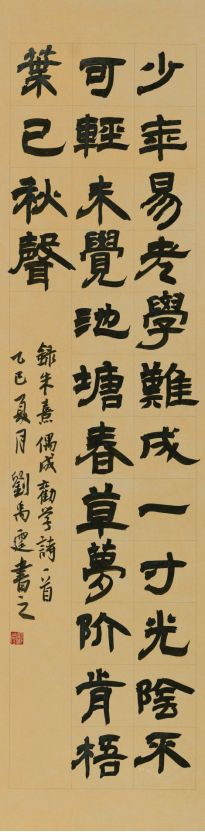 少年易老學難成一寸光陰不
可輕未覺池塘春草夢阶前梧
葉已秋聲
錄朱熹偶成勸学詩一首
乙巳夏月劉禹霆書之